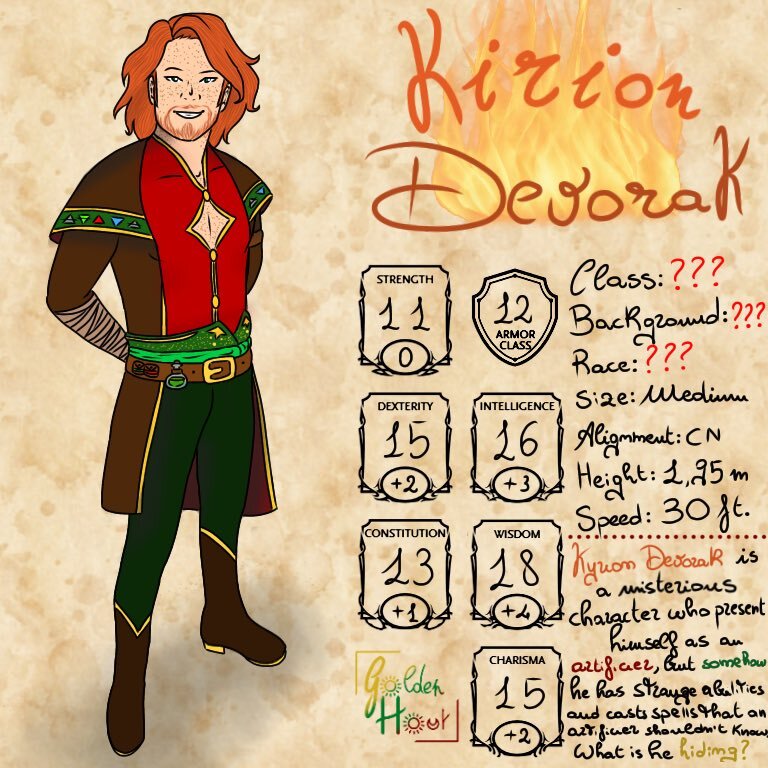 Kirion
Devorak
STRENGTH
11
0
12
ARMOR
CLASS
DEXTERITY
15
+2
INTELLIGENCE
16
+3
CONSTITUTION
13
+1
WISDOM
18
+4
CHARISMA
15
+2
Class: ???
Background: ???
Race: ???
Size: Medium
Alignment: CN
Height: 1,95 m
Speed: 30 ft.
Kyrion Devorak is
a misterious
character who present
himself as an
artificier, but somehow
he has strange abilities
and casts spells that an
artificier shouldn't know,
What is he hiding?
Golden
Hour